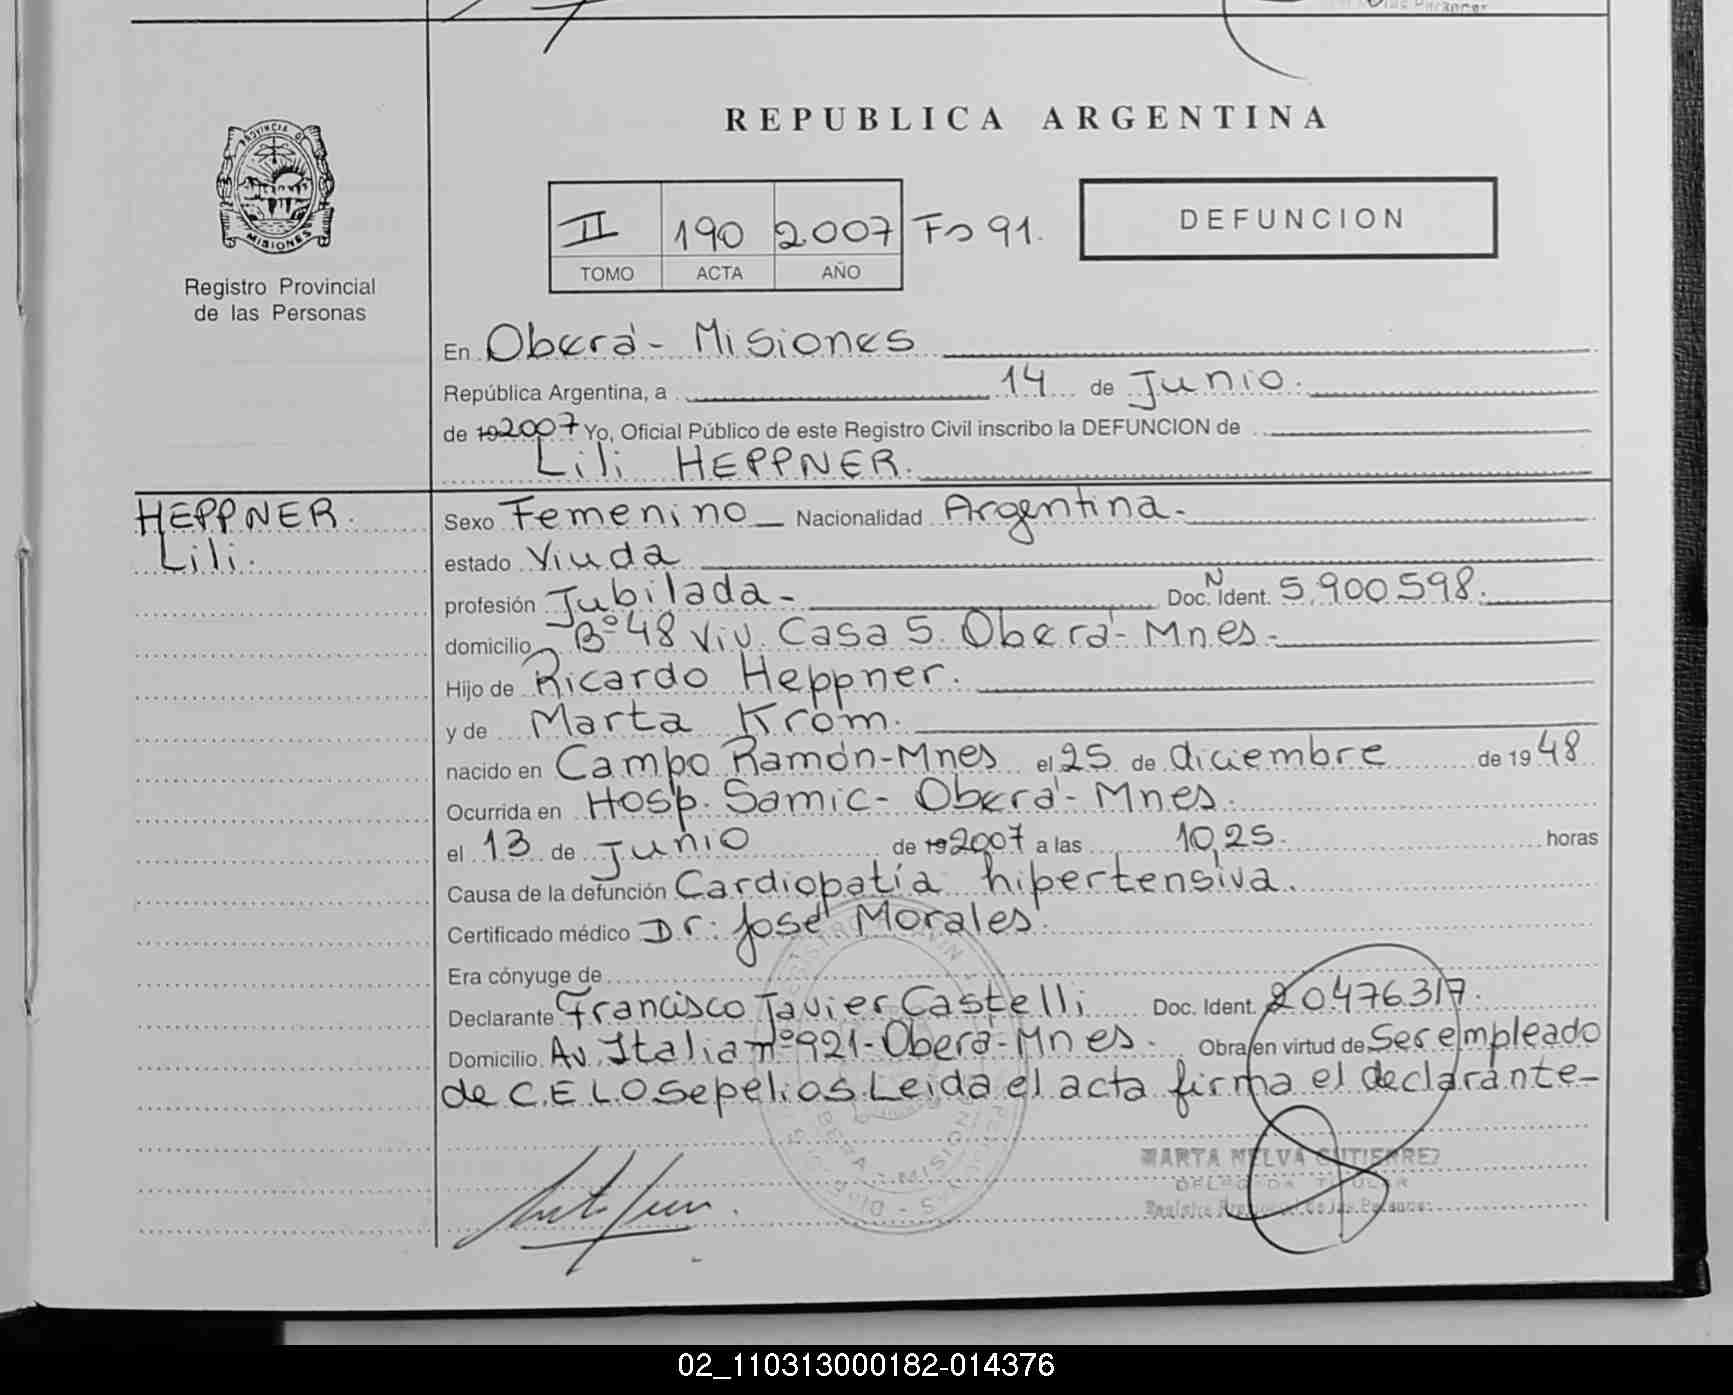 REPUBLICA ARGENTINA
PROVINCIA D
MISIONES
Registro Provincial
de las Personas
II 190 2007 Fo 91.
TOMO ACTA AÑO
DEFUNCION
En Oberá - Misiones
República Argentina, a 14 de Junio.
de 192007 Yo, Oficial Público de este Registro Civil inscribo la DEFUNCION de
Lili HEPPNER.
HEPPNER.
Lili.
Sexo Femenino Nacionalidad Argentina.
estado Viuda
profesión Jubilada - Doc. N Ident. 5.900.598.
domicilio Bº 48 Viv. Casa 5. Oberá - Mnes.
Hijo de Ricardo Heppner.
y de Marta Krom.
nacido en Campo Ramón - Mnes el 25 de diciembre de 1948
Ocurrida en Hosp. Samic - Oberá - Mnes.
el 13 de Junio de 192007 a las 10,25. horas
Causa de la defunción Cardiopatía hipertensiva.
Certificado médico Dr: José Morales.
Era cónyuge de
Declarante Francisco Javier Castelli Doc. Ident. 20476317.
Domicilio Av. Italia nº 921 - Oberá - Mnes. Obra en virtud de Ser empleado
de C.E.L.O Sepelios. Leida el acta firma el declarante -
MARTA NELVA GUTIERREZ
DELEGADA TITULAR
Registro Provincial de las Personas
02_110313000182-014376